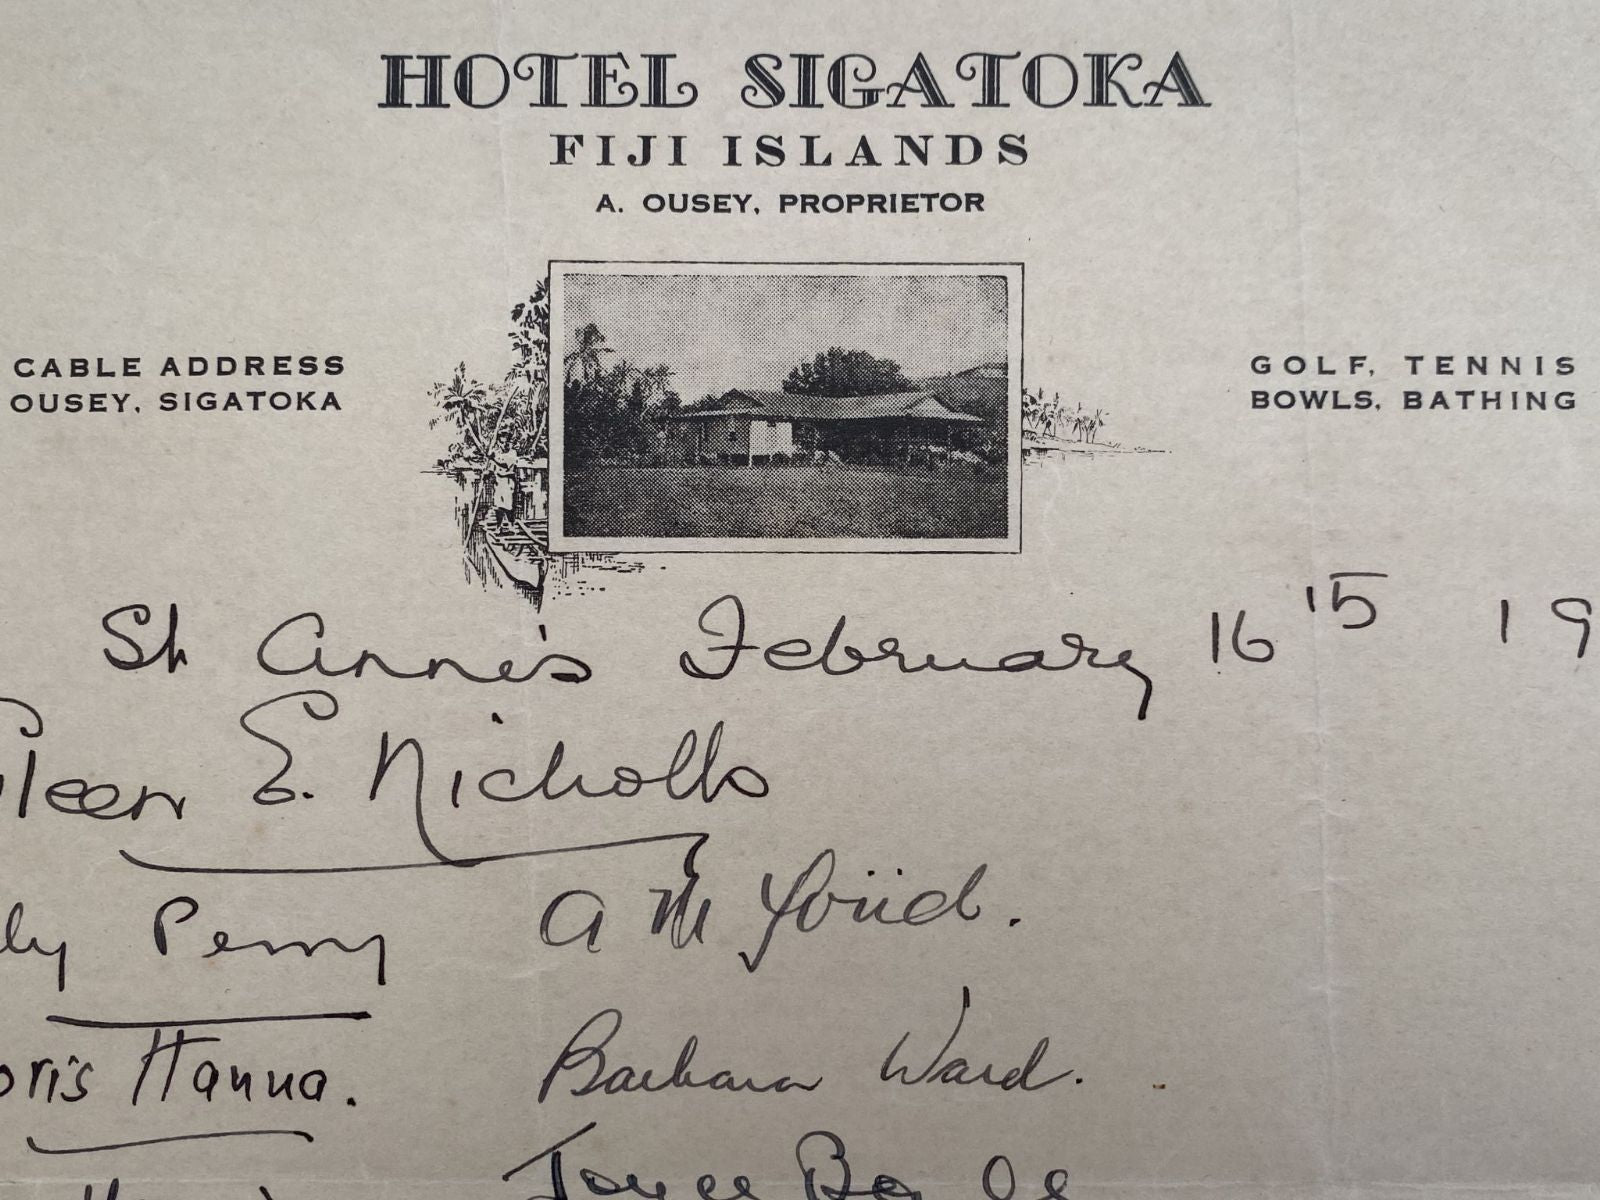 HOTEL SIGATOKA
FIJI ISLANDS
A. OUSEY, PROPRIETOR
CABLE ADDRESS
OUSEY, SIGATOKA
GOLF, TENNIS
BOWLS, BATHING
St Anne's February 16 15 19
ileen E. Nicholls
ly Perry A M
oris Hanna. Barbara Ward.
Joyce